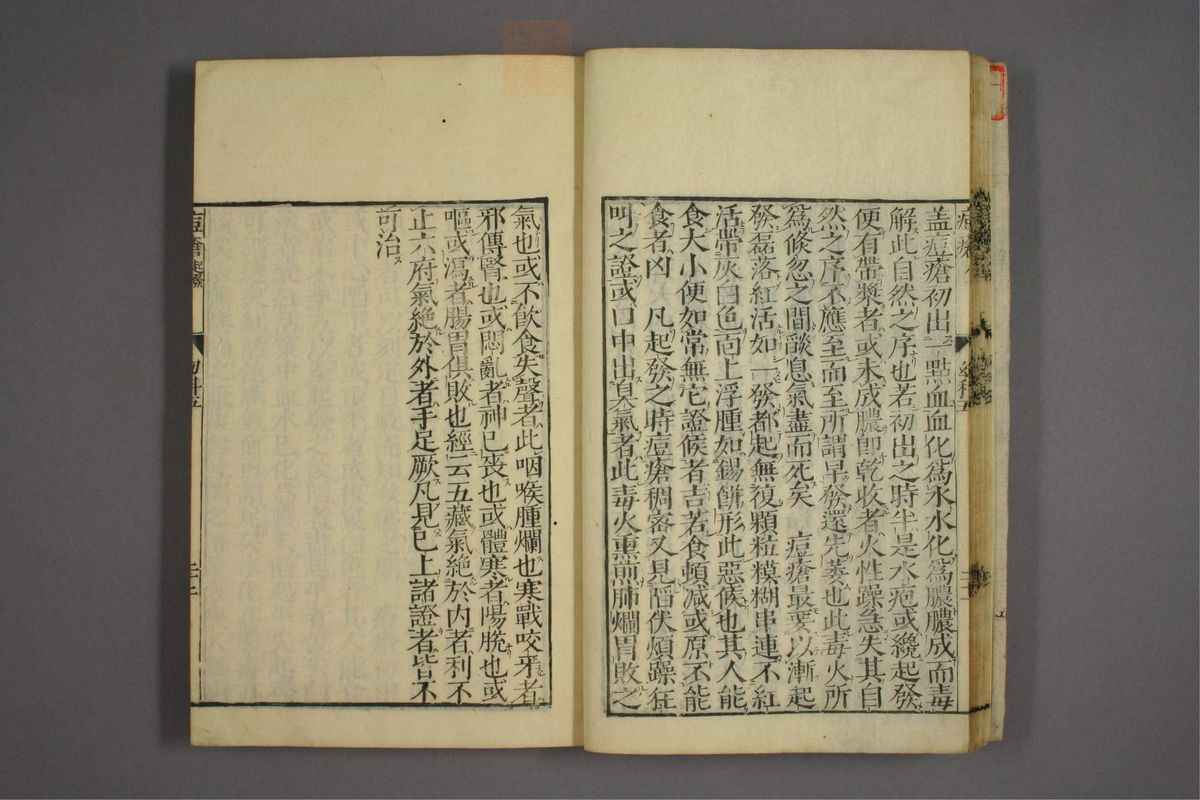 蓋痘瘡初出一點血血化爲水水化爲膿膿成而毒
解此自然之序也若初出之時半是水疱或纔起發
便有帶漿者或未成膿即乾收者火性躁急失其自
然之序不應至而至所謂早發還先萎也此毒火所
爲倐忽之間談息氣盡而死矣　痘瘡最要以漸起
發磊落紅活如一發都起無復顆粒糢糊串連不紅
活帶灰白色面上浮腫如錫餅形此惡候也其人能
食大小便如常無它證候者吉若食頓減或原不能
食者凶　凡起發之時痘瘡稠密又見陷伏煩躁狂
叫之證或口中出臭氣者此毒火熏煎肺爛胃敗之
氣也或不飲食失聲者此咽喉腫爛也寒戰咬牙者
邪傳腎也或悶亂者神已喪也或體寒者陽脫也或
嘔或瀉者腸胃俱敗也經云五藏氣絶於内者利不
止六府氣絶於外者手足厥凡見已上諸證者皆不
可治
痘瘡
幼科五